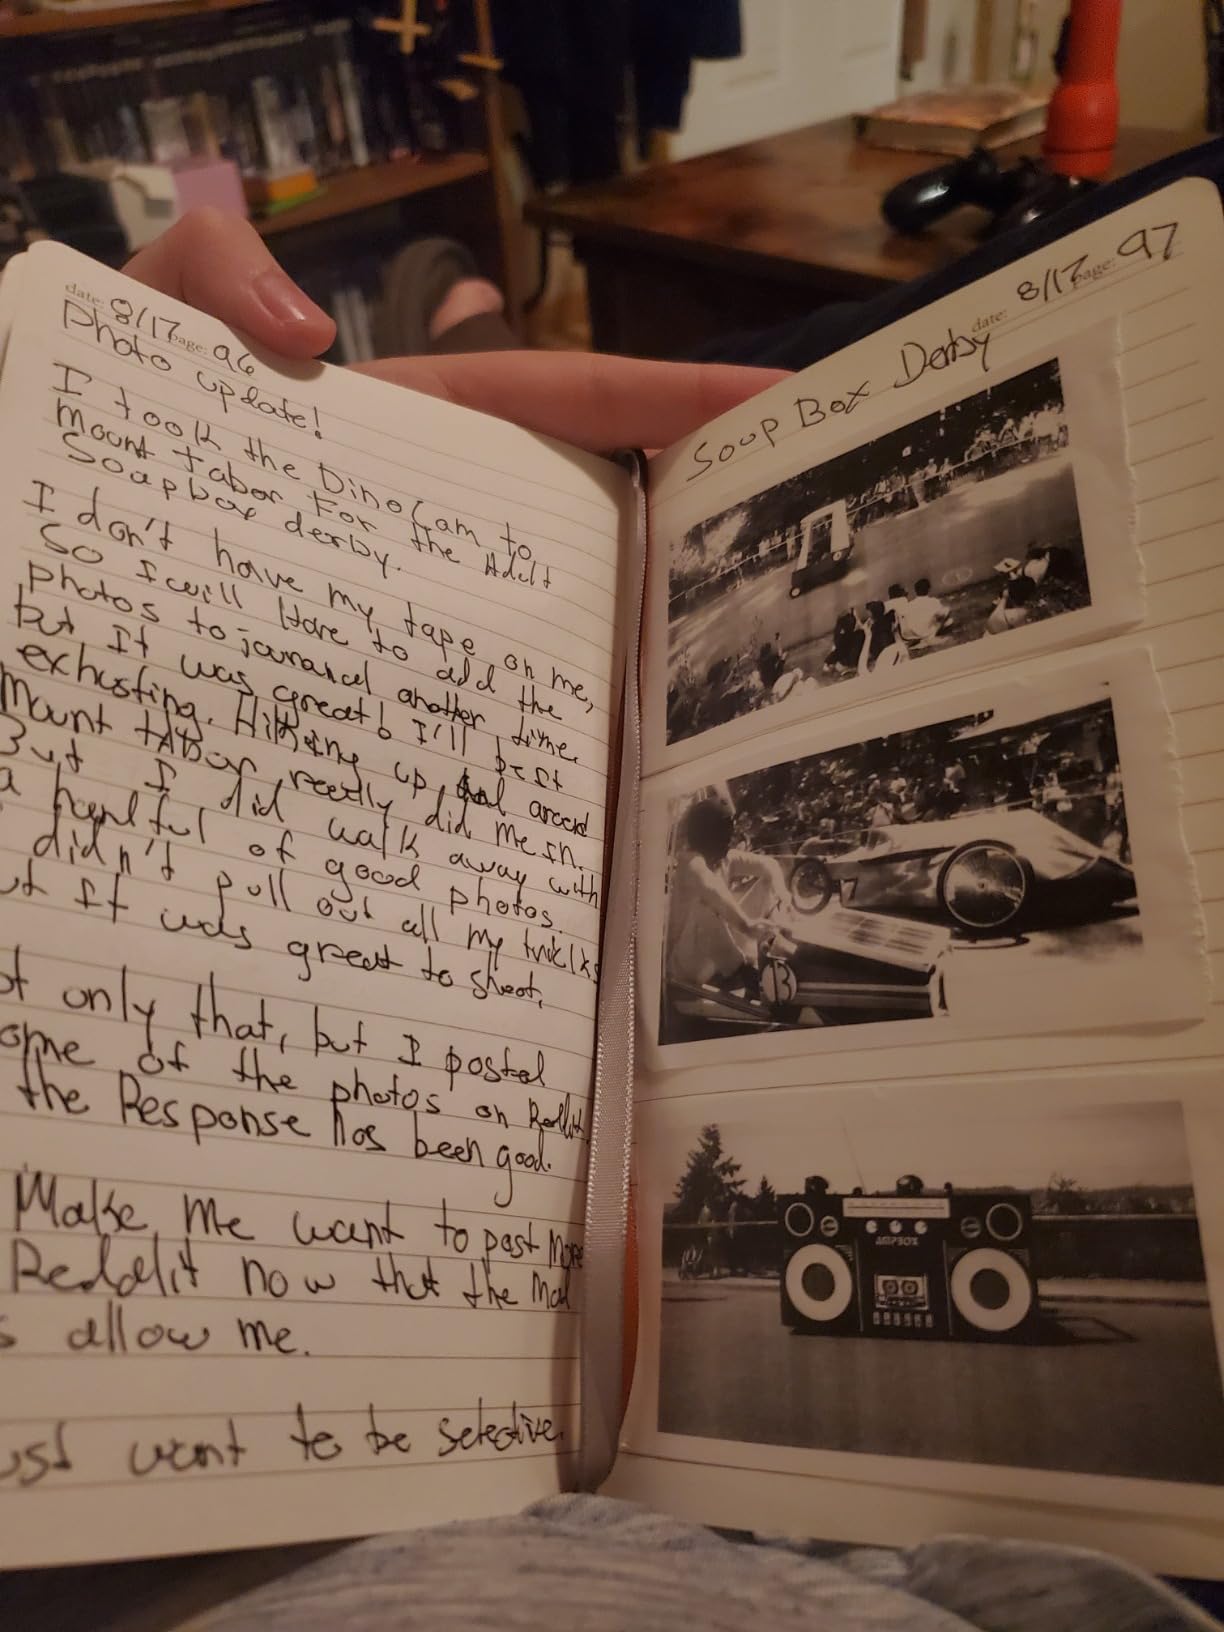 date: 8/17 page: 96
Photo update!
I took the Dino Cam to
mount tabor For the Adult
Soapbox derby.
I don't have my tape on me,
So I will Have to add the
photos to jouranal another time.
but It was great! I'll best
exhusting. Hiking up and around
Mount tabor really did me in.
But I did walk away with
a handful of good photos.
didn't pull out all my tricks
ut It was great to shoot.
ot only that, but I posted
ome of the photos on Reddit.
the Response has been good.
Make me want to post More
Reddit now that the Mod
s allow me.
ust want to be selective.
date: 8/17 page: 97
Soup Box Derby
13
AMPBOX